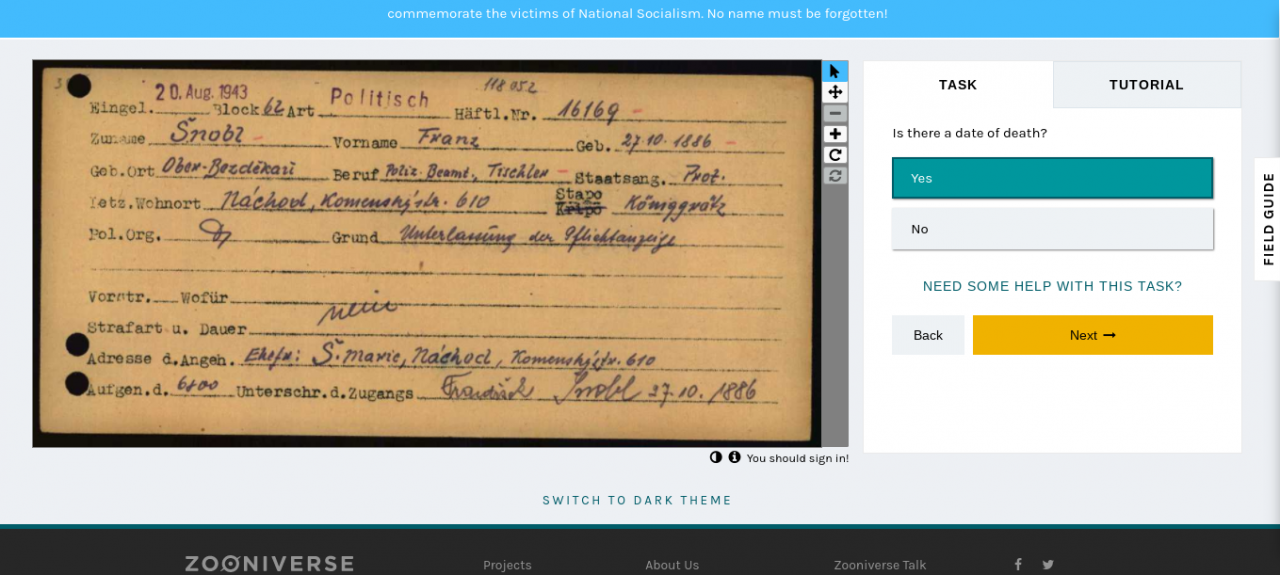 commemorate the victims of National Socialism. No name must be forgotten!
118 052
20. Aug. 1943 Politisch
Eingel. Block 62 Art Häftl.Nr. 16169
Zuname Šnobl Vorname Franz Geb. 27.10.1886
Geb.Ort Ober-Bezdĕkau Beruf Poliz. Beamt., Tischler Staatsang. Prot.
Letz.Wohnort Náchod, Komenskýstr. 610 Stapo Königgrätz
Kripo
Pol.Org. Grund Unterlassung der Pflichtanzeige
Vorstr. Wofür
nein
Strafart u. Dauer
Adresse d.Angeh. Ehefr: Š. Marie, Náchod, Komenskýstr. 610
Aufgen.d. 6800 Unterschr.d.Zugangs František Šnobl 27.10.1886
You should sign in!
TASK
TUTORIAL
Is there a date of death?
Yes
No
NEED SOME HELP WITH THIS TASK?
Back
Next
FIELD GUIDE
SWITCH TO DARK THEME
ZOONIVERSE
Projects
About Us
Zooniverse Talk